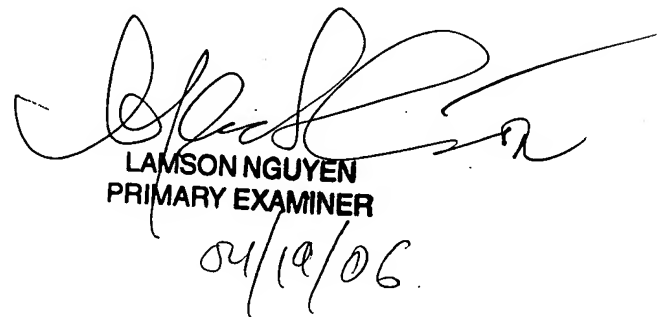 LAMSON NGUYEN
PRIMARY EXAMINER
04/19/06